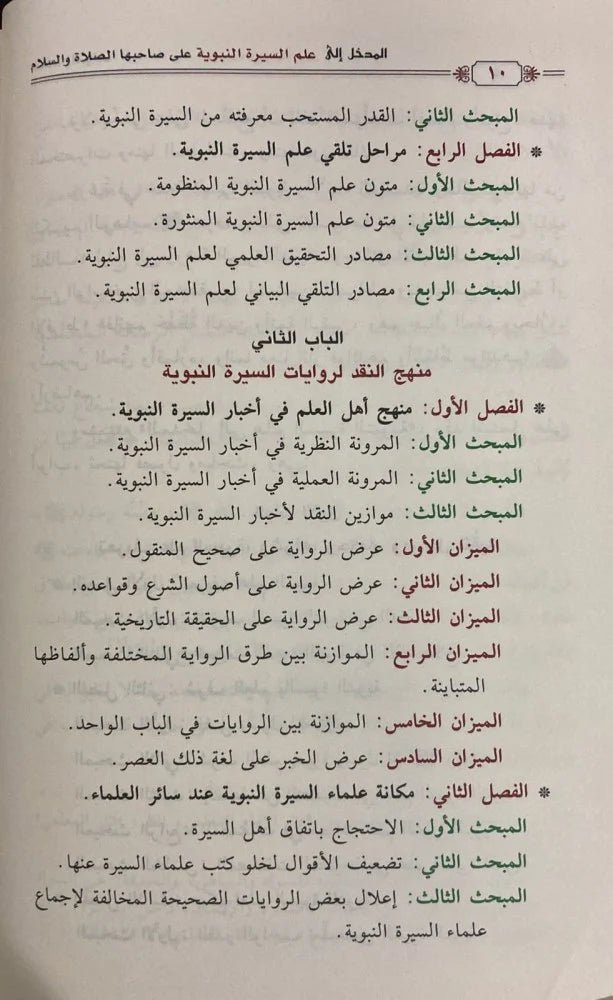 المدخل إلى علم السيرة النبوية على صاحبها الصلاة والسلام
١٠
المبحث الثاني: القدر المستحب معرفته من السيرة النبوية.
* الفصل الرابع: مراحل تلقي علم السيرة النبوية.
المبحث الأول: متون علم السيرة النبوية المنظومة.
المبحث الثاني: متون علم السيرة النبوية المنثورة.
المبحث الثالث: مصادر التحقيق العلمي لعلم السيرة النبوية.
المبحث الرابع: مصادر التلقي البياني لعلم السيرة النبوية.
الباب الثاني
منهج النقد لروايات السيرة النبوية
* الفصل الأول: منهج أهل العلم في أخبار السيرة النبوية.
المبحث الأول: المرونة النظرية في أخبار السيرة النبوية.
المبحث الثاني: المرونة العملية في أخبار السيرة النبوية.
المبحث الثالث: موازين النقد لأخبار السيرة النبوية.
الميزان الأول: عرض الرواية على صحيح المنقول.
الميزان الثاني: عرض الرواية على أصول الشرع وقواعده.
الميزان الثالث: عرض الرواية على الحقيقة التاريخية.
الميزان الرابع: الموازنة بين طرق الرواية المختلفة وألفاظها
المتباينة.
الميزان الخامس: الموازنة بين الروايات في الباب الواحد.
الميزان السادس: عرض الخبر على لغة ذلك العصر.
* الفصل الثاني: مكانة علماء السيرة النبوية عند سائر العلماء.
المبحث الأول: الاحتجاج باتفاق أهل السيرة.
المبحث الثاني: تضعيف الأقوال لخلو كتب علماء السيرة عنها.
المبحث الثالث: إعلال بعض الروايات الصحيحة المخالفة لإجماع
علماء السيرة النبوية.